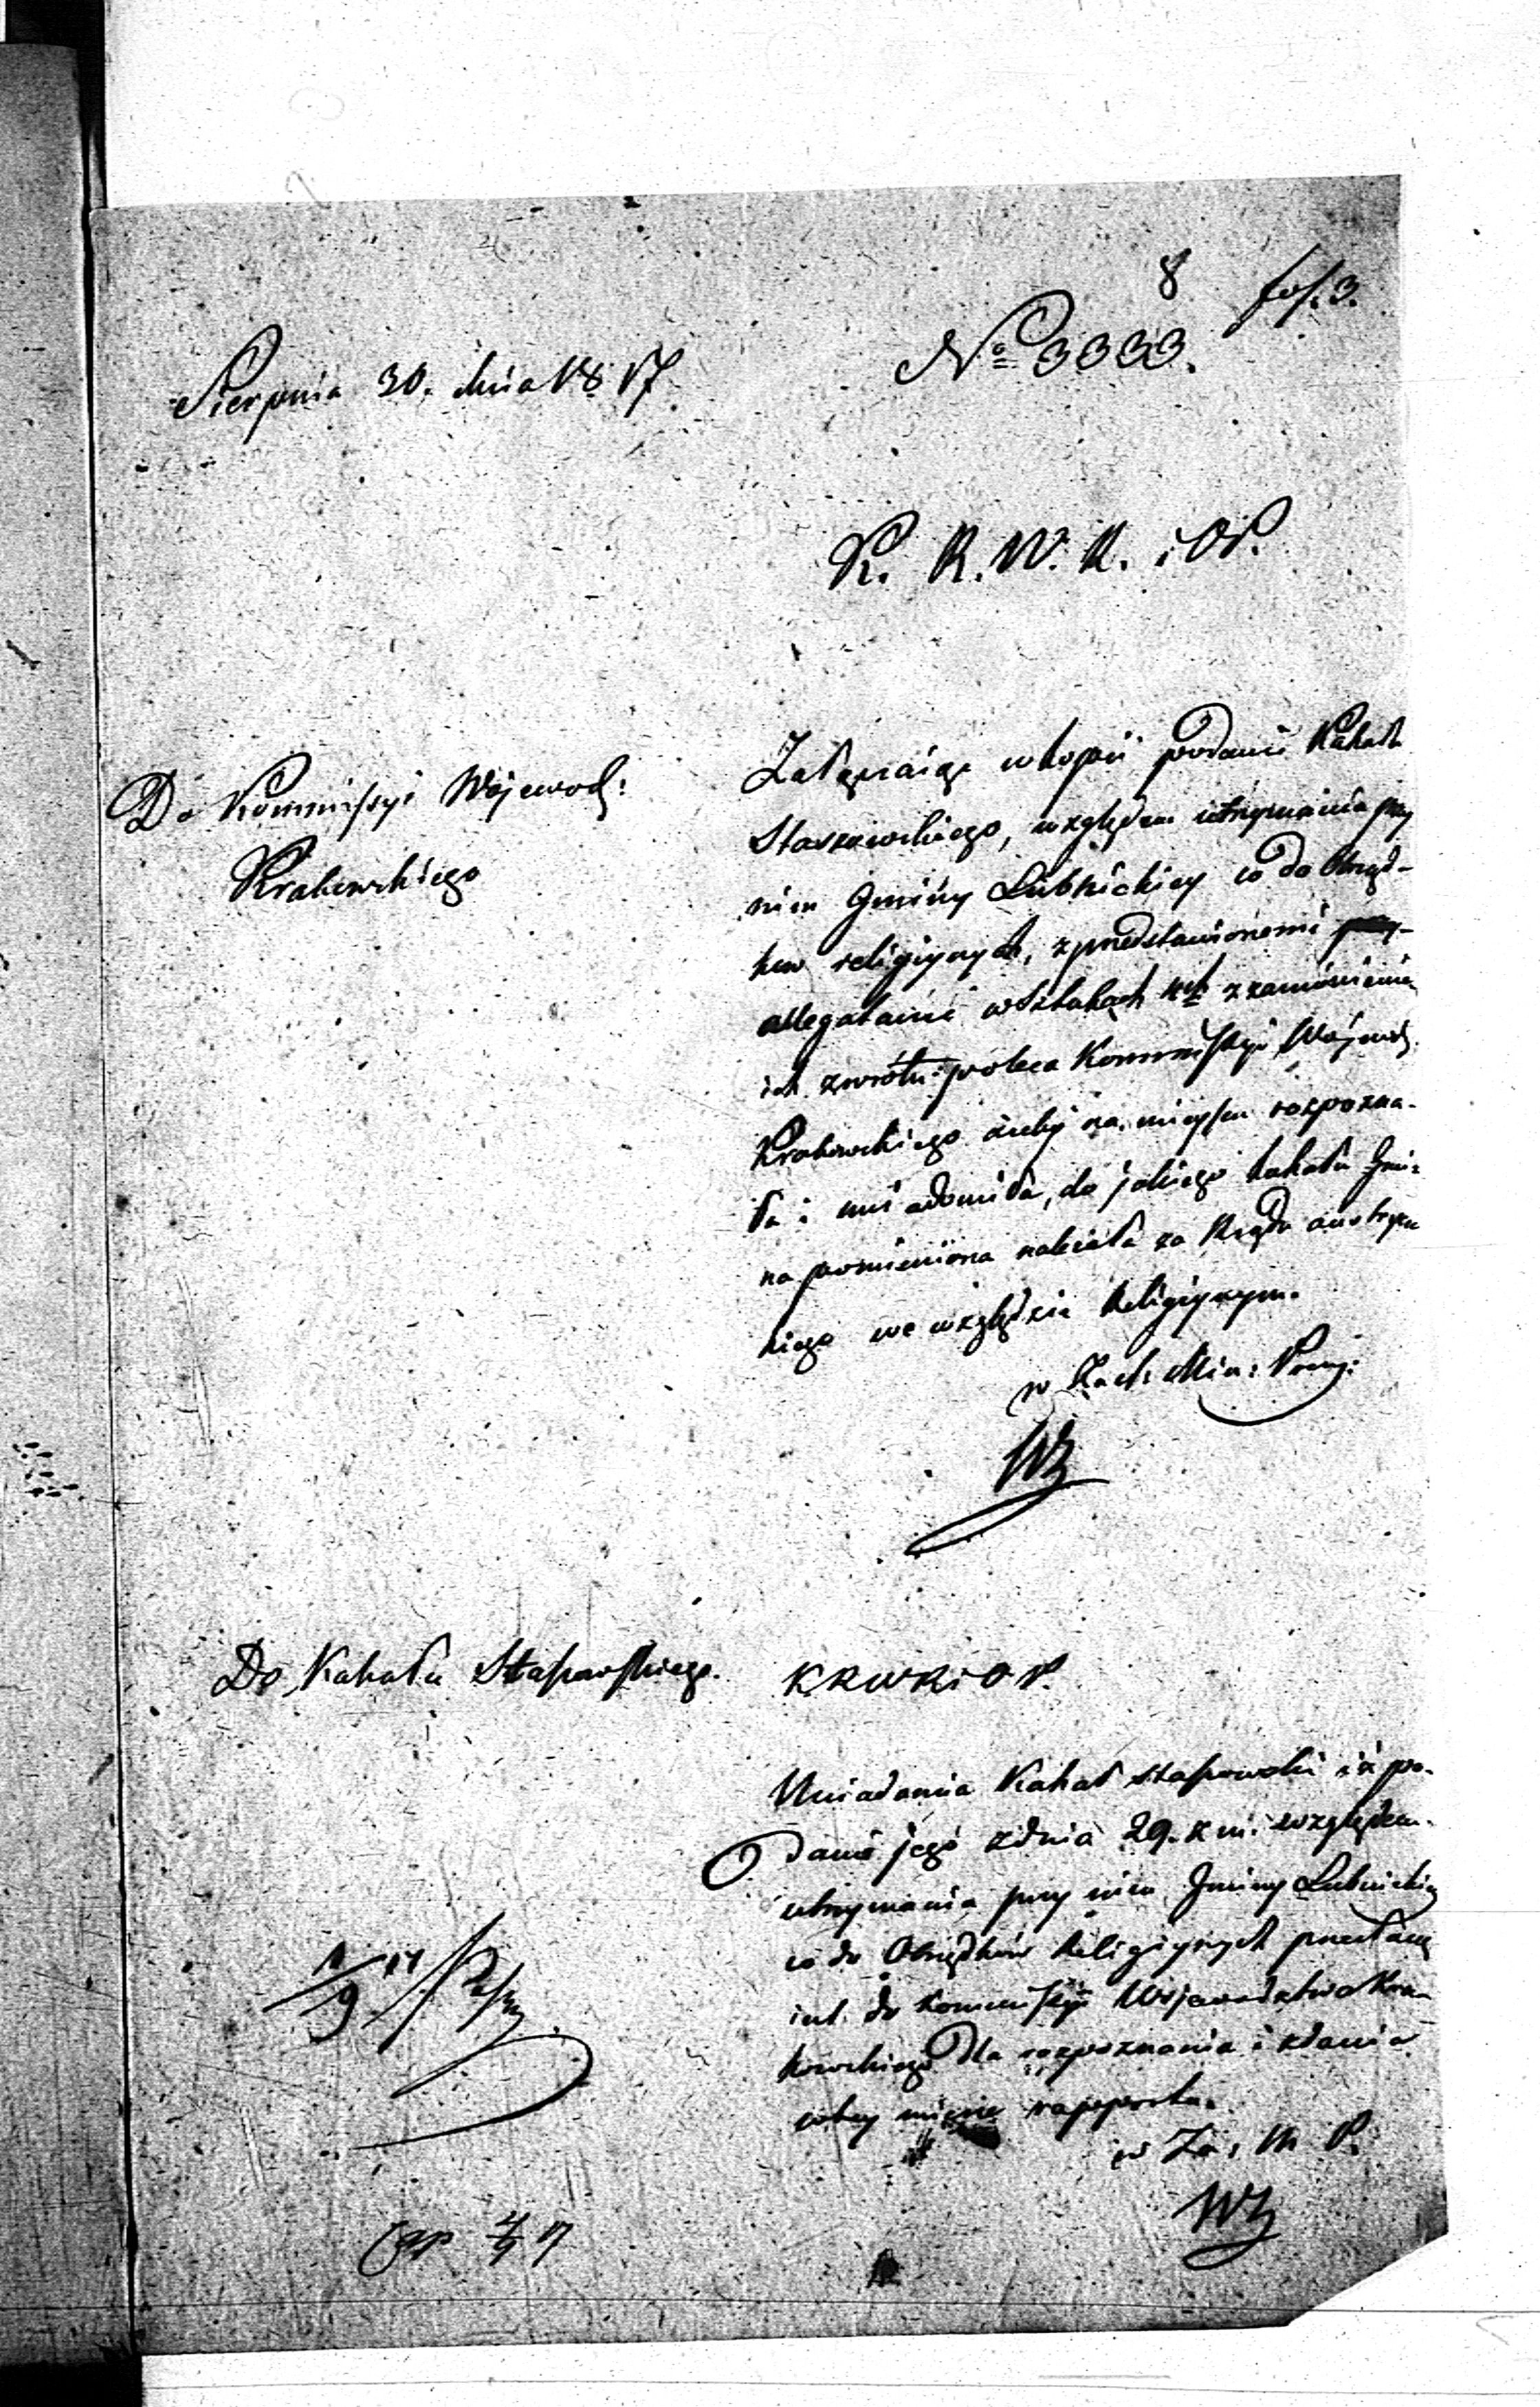 8 fol. 3.
Sierpnia 30. dnia 1817 No 3333.
K. R. W. R. i O P.
Do Kommissyi Wojewod:
Krakowskiego
Załączaiąc w kopii podanie Kahału
Staszowskiego, względem utrzymania przy
nim Gminy Lubnickiey co do Obrząd-
ków religiynych, z przedstawionemi
allegatami w sztukach z zamówieniem
ich zwrótu: poleca Kommissyi Wojewod.
Krakowskiego ażeby na mieyscu rozpozna-
ła i uwiadomiła, do jakiego kahału Gmi-
na pomieniona należała za Rządu austryac
kiego we względzie Religiynym.
w Zast: Min: Prezy:
WZ
Do Kahału Staszowskiego.
K R W R i O P.
Uwiadamia Kahał staszowski iż po-
danie jego z dnia 29. z. m. względem
utrzymania przy nim Gminy Lubnickiey
co do Obrzędków Religiynych przesłane
iest do Kommissyi Województwa Kra-
kowskiego dla rozpoznania i zdania
w tey mierze rapportu.
w Za: M P.
WZ